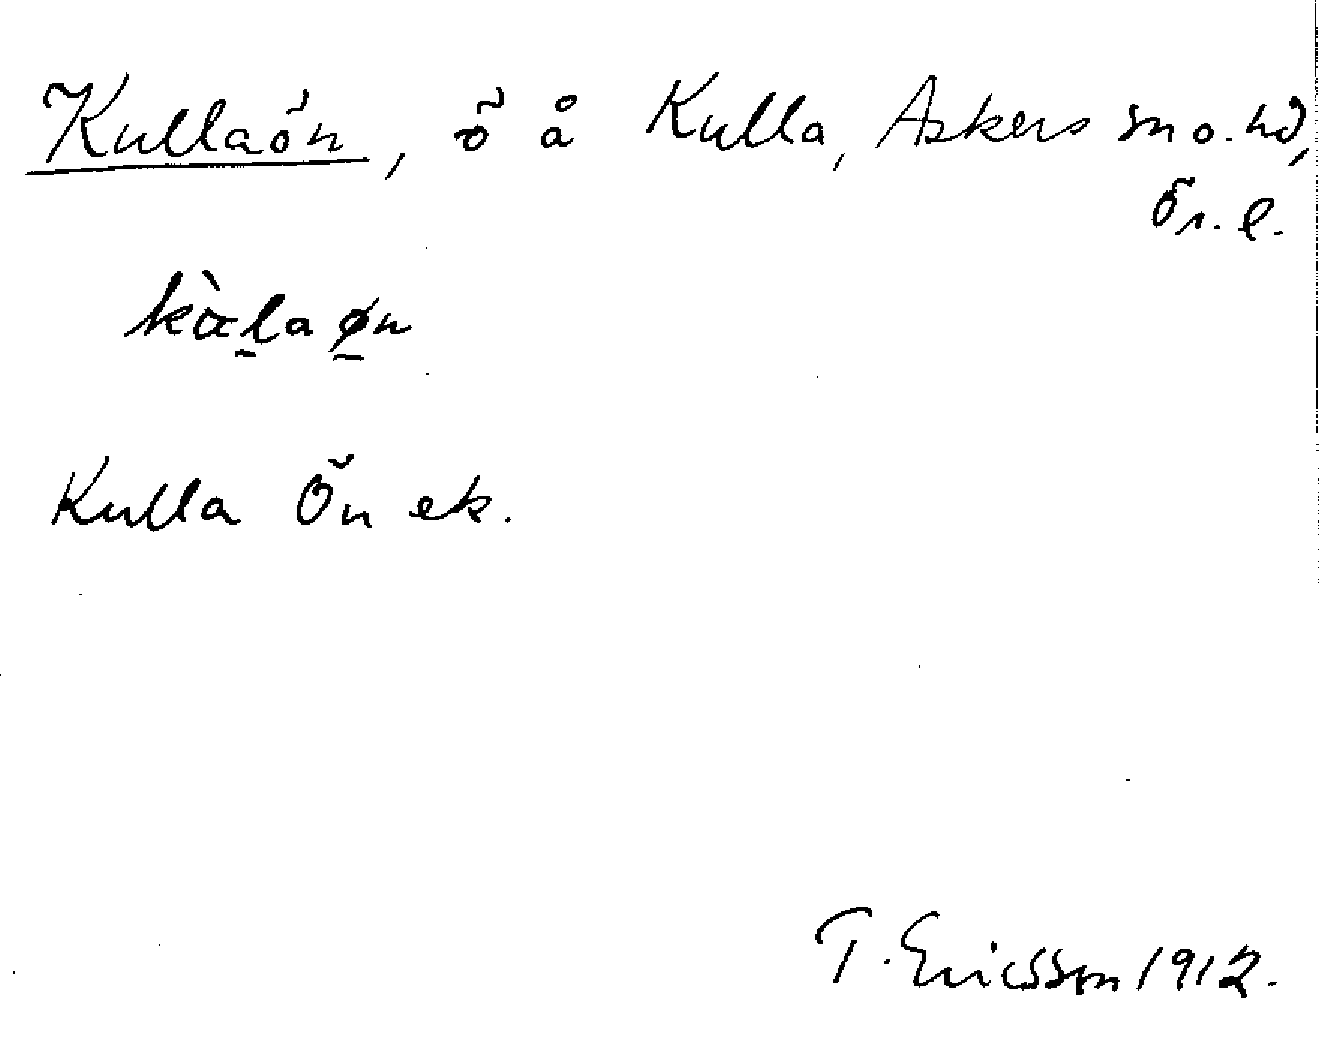 Kullaön, ö å Kulla, Askers sn o. hd,
Ör. l.
kàḻa ø̱n
Kulla Ön ek.
T. Ericsson 1912.